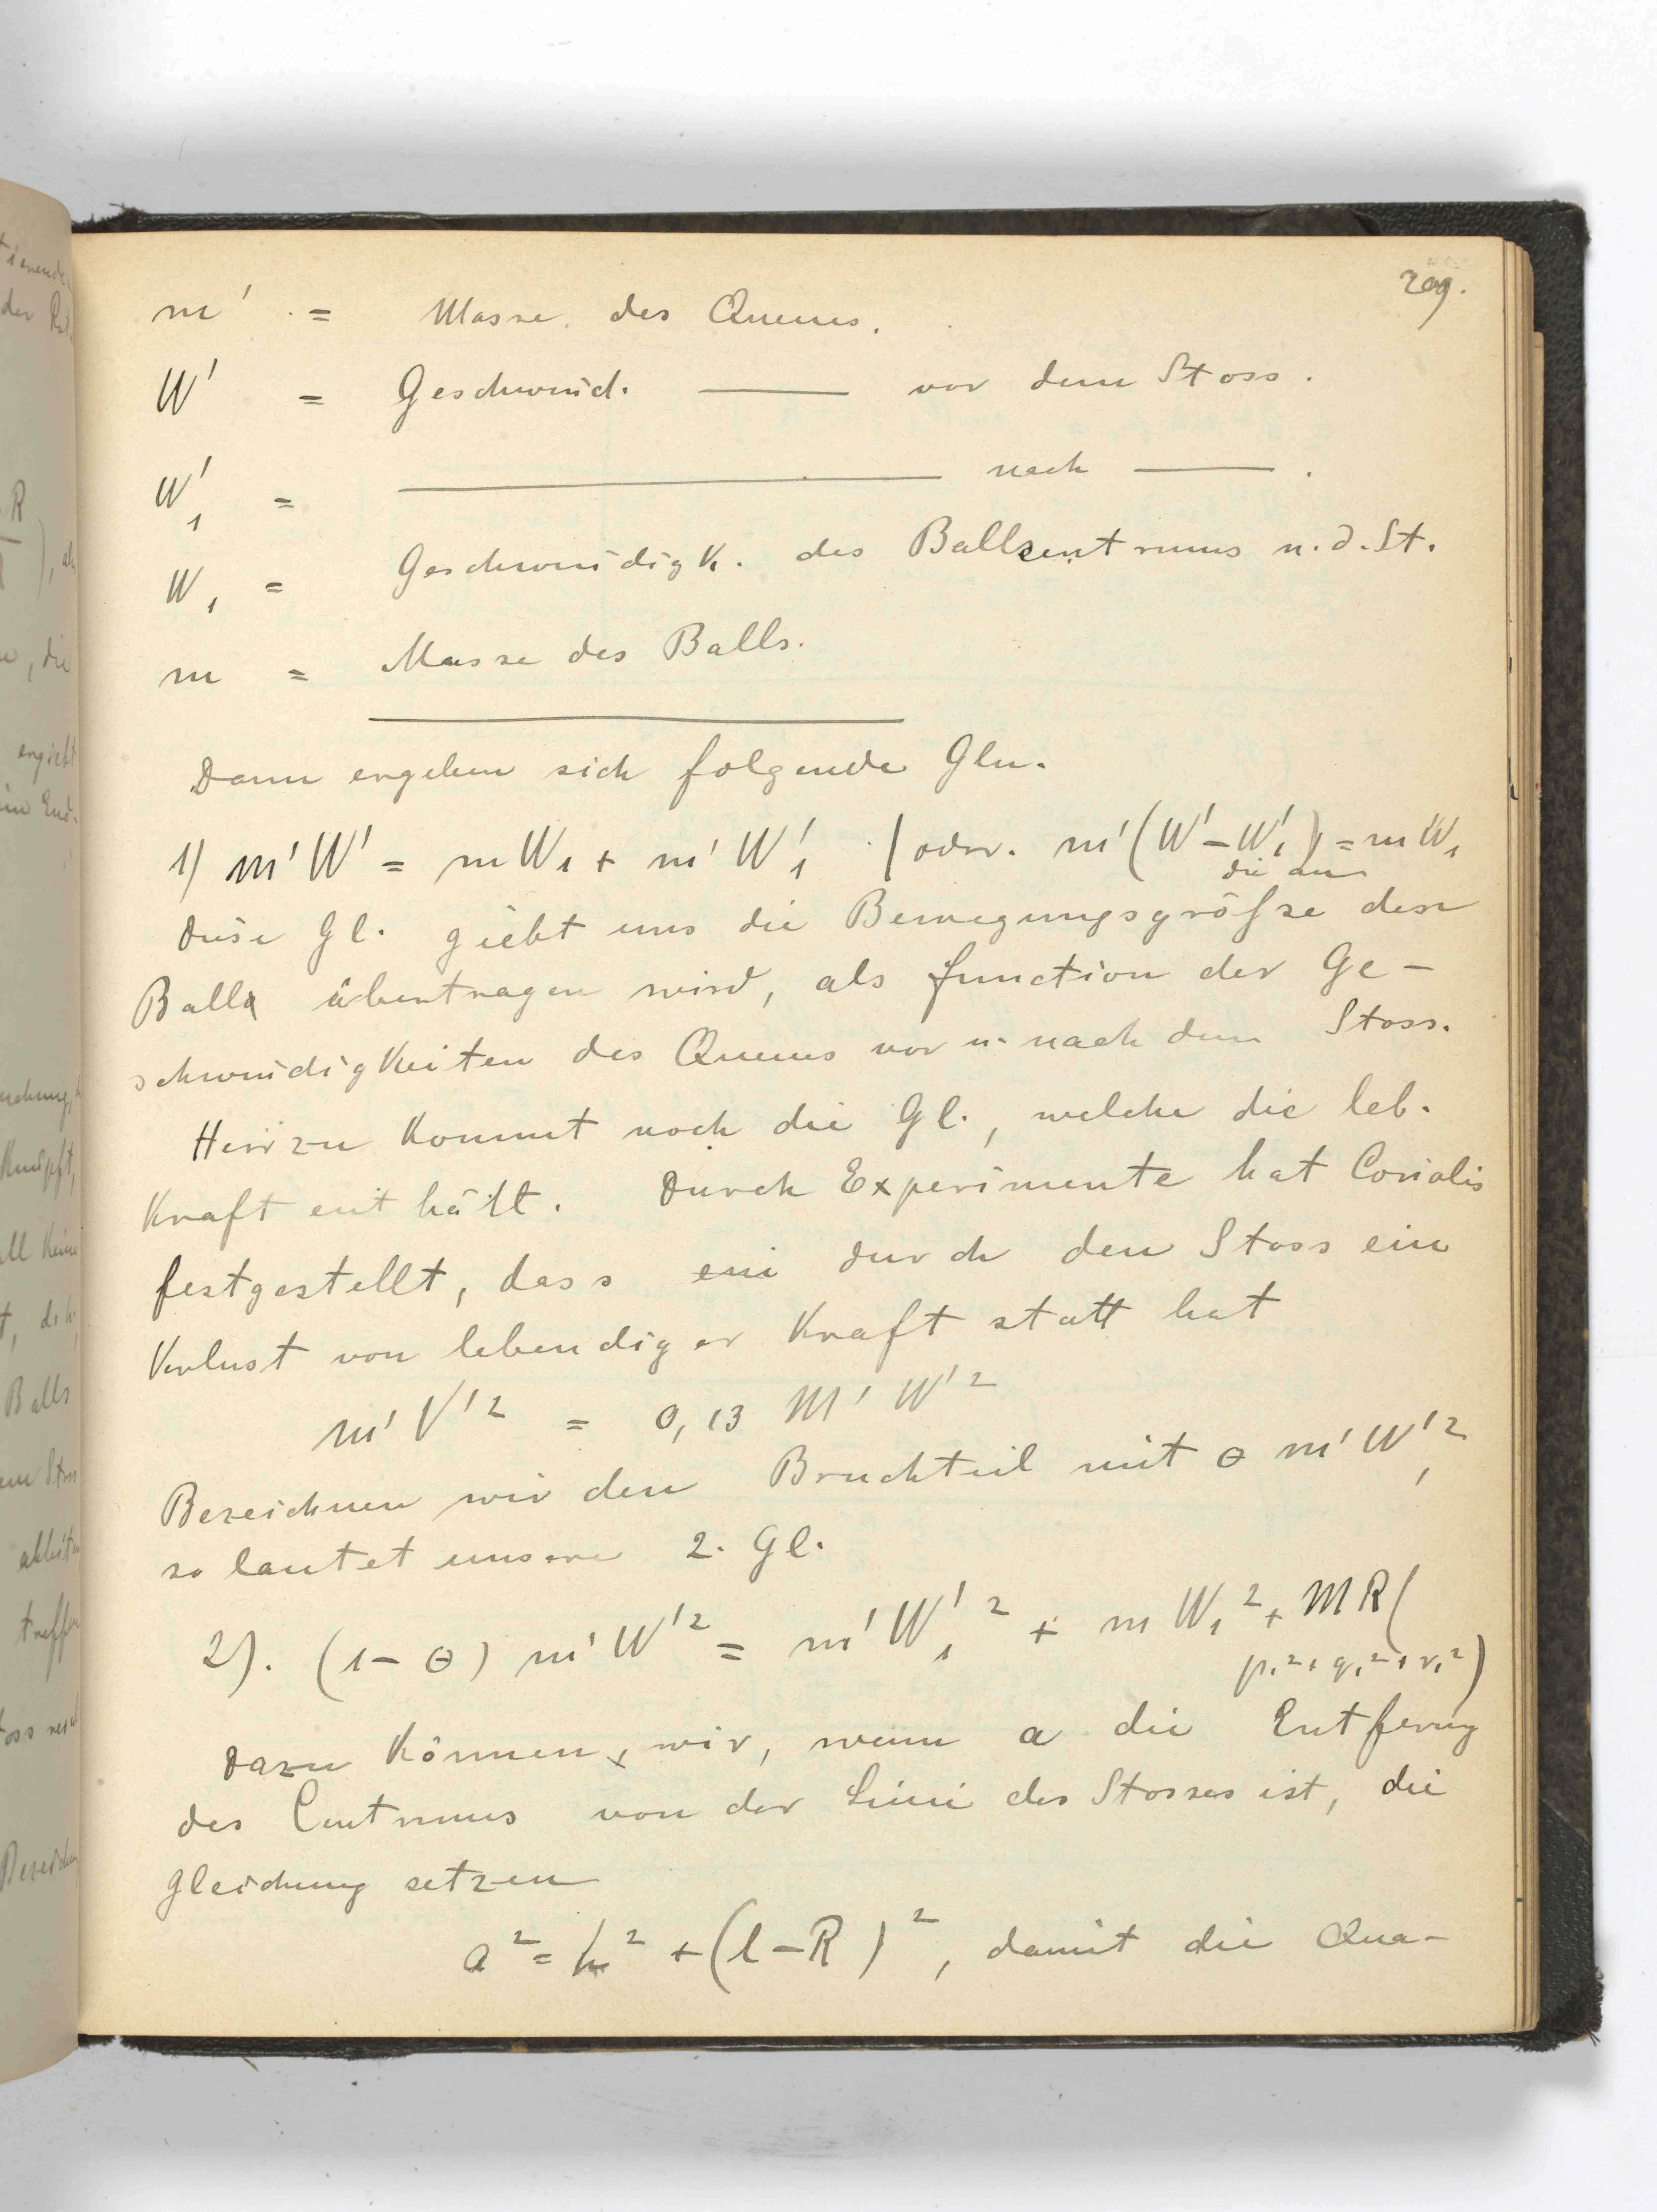 209.
m' = Masse des Queues.
W' = Geschwind. —— vor dem Stoss.
W'₁ = ———— nach ——.
W₁ = Geschwindigk. des Ballzentrums n. d. St.
m = Masse des Balls.
Dann ergeben sich folgende Gln.
1) m'W' = mW₁ + m'W'₁ | oder. m'(W'-W'₁) = mW₁
Diese Gl. giebt uns die Bewegungsgröfse die an den
Ball übertragen wird, als function der Ge-
schwindigkeiten des Queues vor u. nach dem Stoss.
Hierzu kommt noch die Gl., welche die leb.
Kraft enthält. Durch Experimente hat Coriolis
festgestellt, dass ein durch den Stoss ein
Verlust von lebendiger Kraft statt hat
m'V'² = 0,13 M'W'²
Bezeichnen wir den Bruchteil mit θ m'W'²,
so lautet unsere 2. Gl.
2). (1-θ) m'W'² = m'W'₁² + mW₁² + MR(
p₁²+q₁²+r₁²)
Dazu können wir, wenn a die Entfernug
des Centrums von der Linie des Stosses ist, die
Gleichung setzen
a² = h² + (l-R)², damit die Qua-